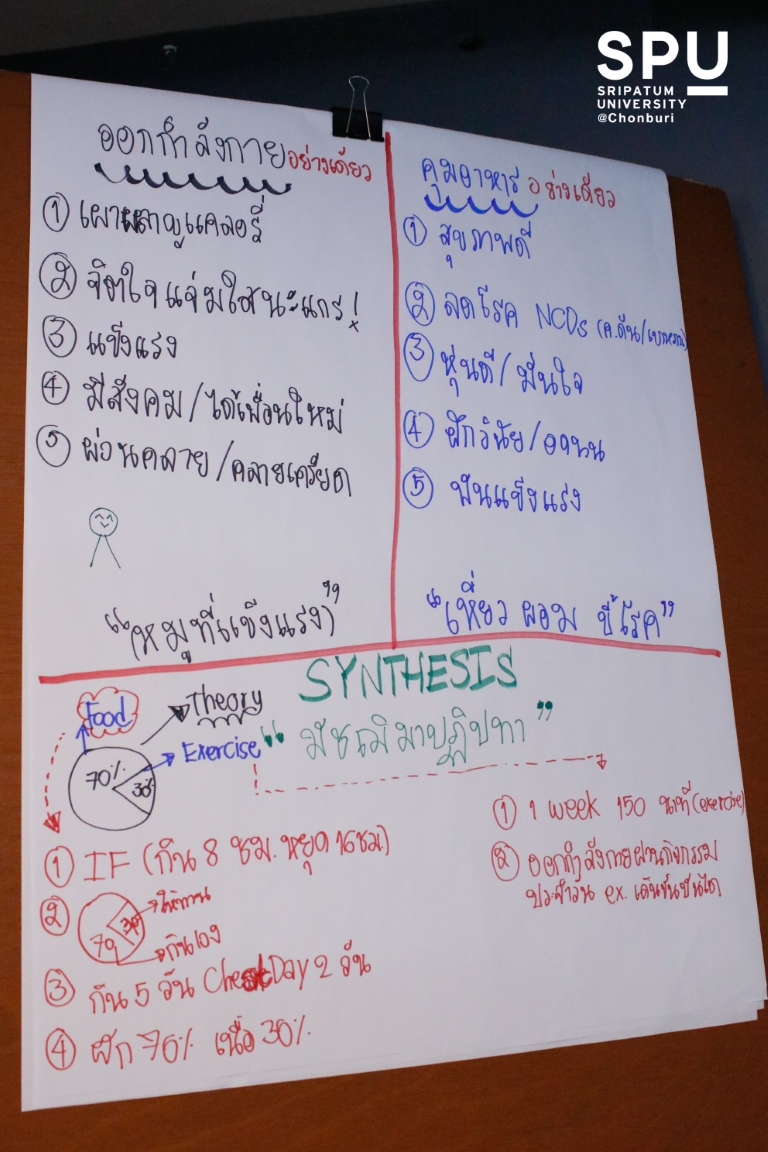 SPU
SRIPATUM
UNIVERSITY
@Chonburi
ออกกำลังกายอย่างเดียว
① เผาผลาญแคลอรี่
② จิตใจแจ่มใสนะแกร!
③ แข็งแรง
④ มีสังคม/ได้เพื่อนใหม่
⑤ ผ่อนคลาย/คลายเครียด
"หมูที่แข็งแรง"
คุมอาหารอย่างเดียว
① สุขภาพดี
② ลดโรค NCDs (ค.ดัน/เบาหวาน)
③ หุ่นดี/มั่นใจ
④ ฝึกวินัย/อดทน
⑤ ฟันแข็งแรง
"เหี่ยว ผอม ขี้โรค"
SYNTHESIS
"มัชฌิมาปฏิปทา"
Food
Theory
Exercise
70%
30%
① IF (กิน 8 ชม. หยุด 16 ชม.)
②
30
70
ให้ทาน
กินเอง
③ กิน 5 วัน Cheat Day 2 วัน
④ ผัก 70% เนื้อ 30%
① 1 week 150 นาที (exercise)
② ออกกำลังกายผ่านกิจกรรม
ประจำวัน ex. เดินขึ้นบันได